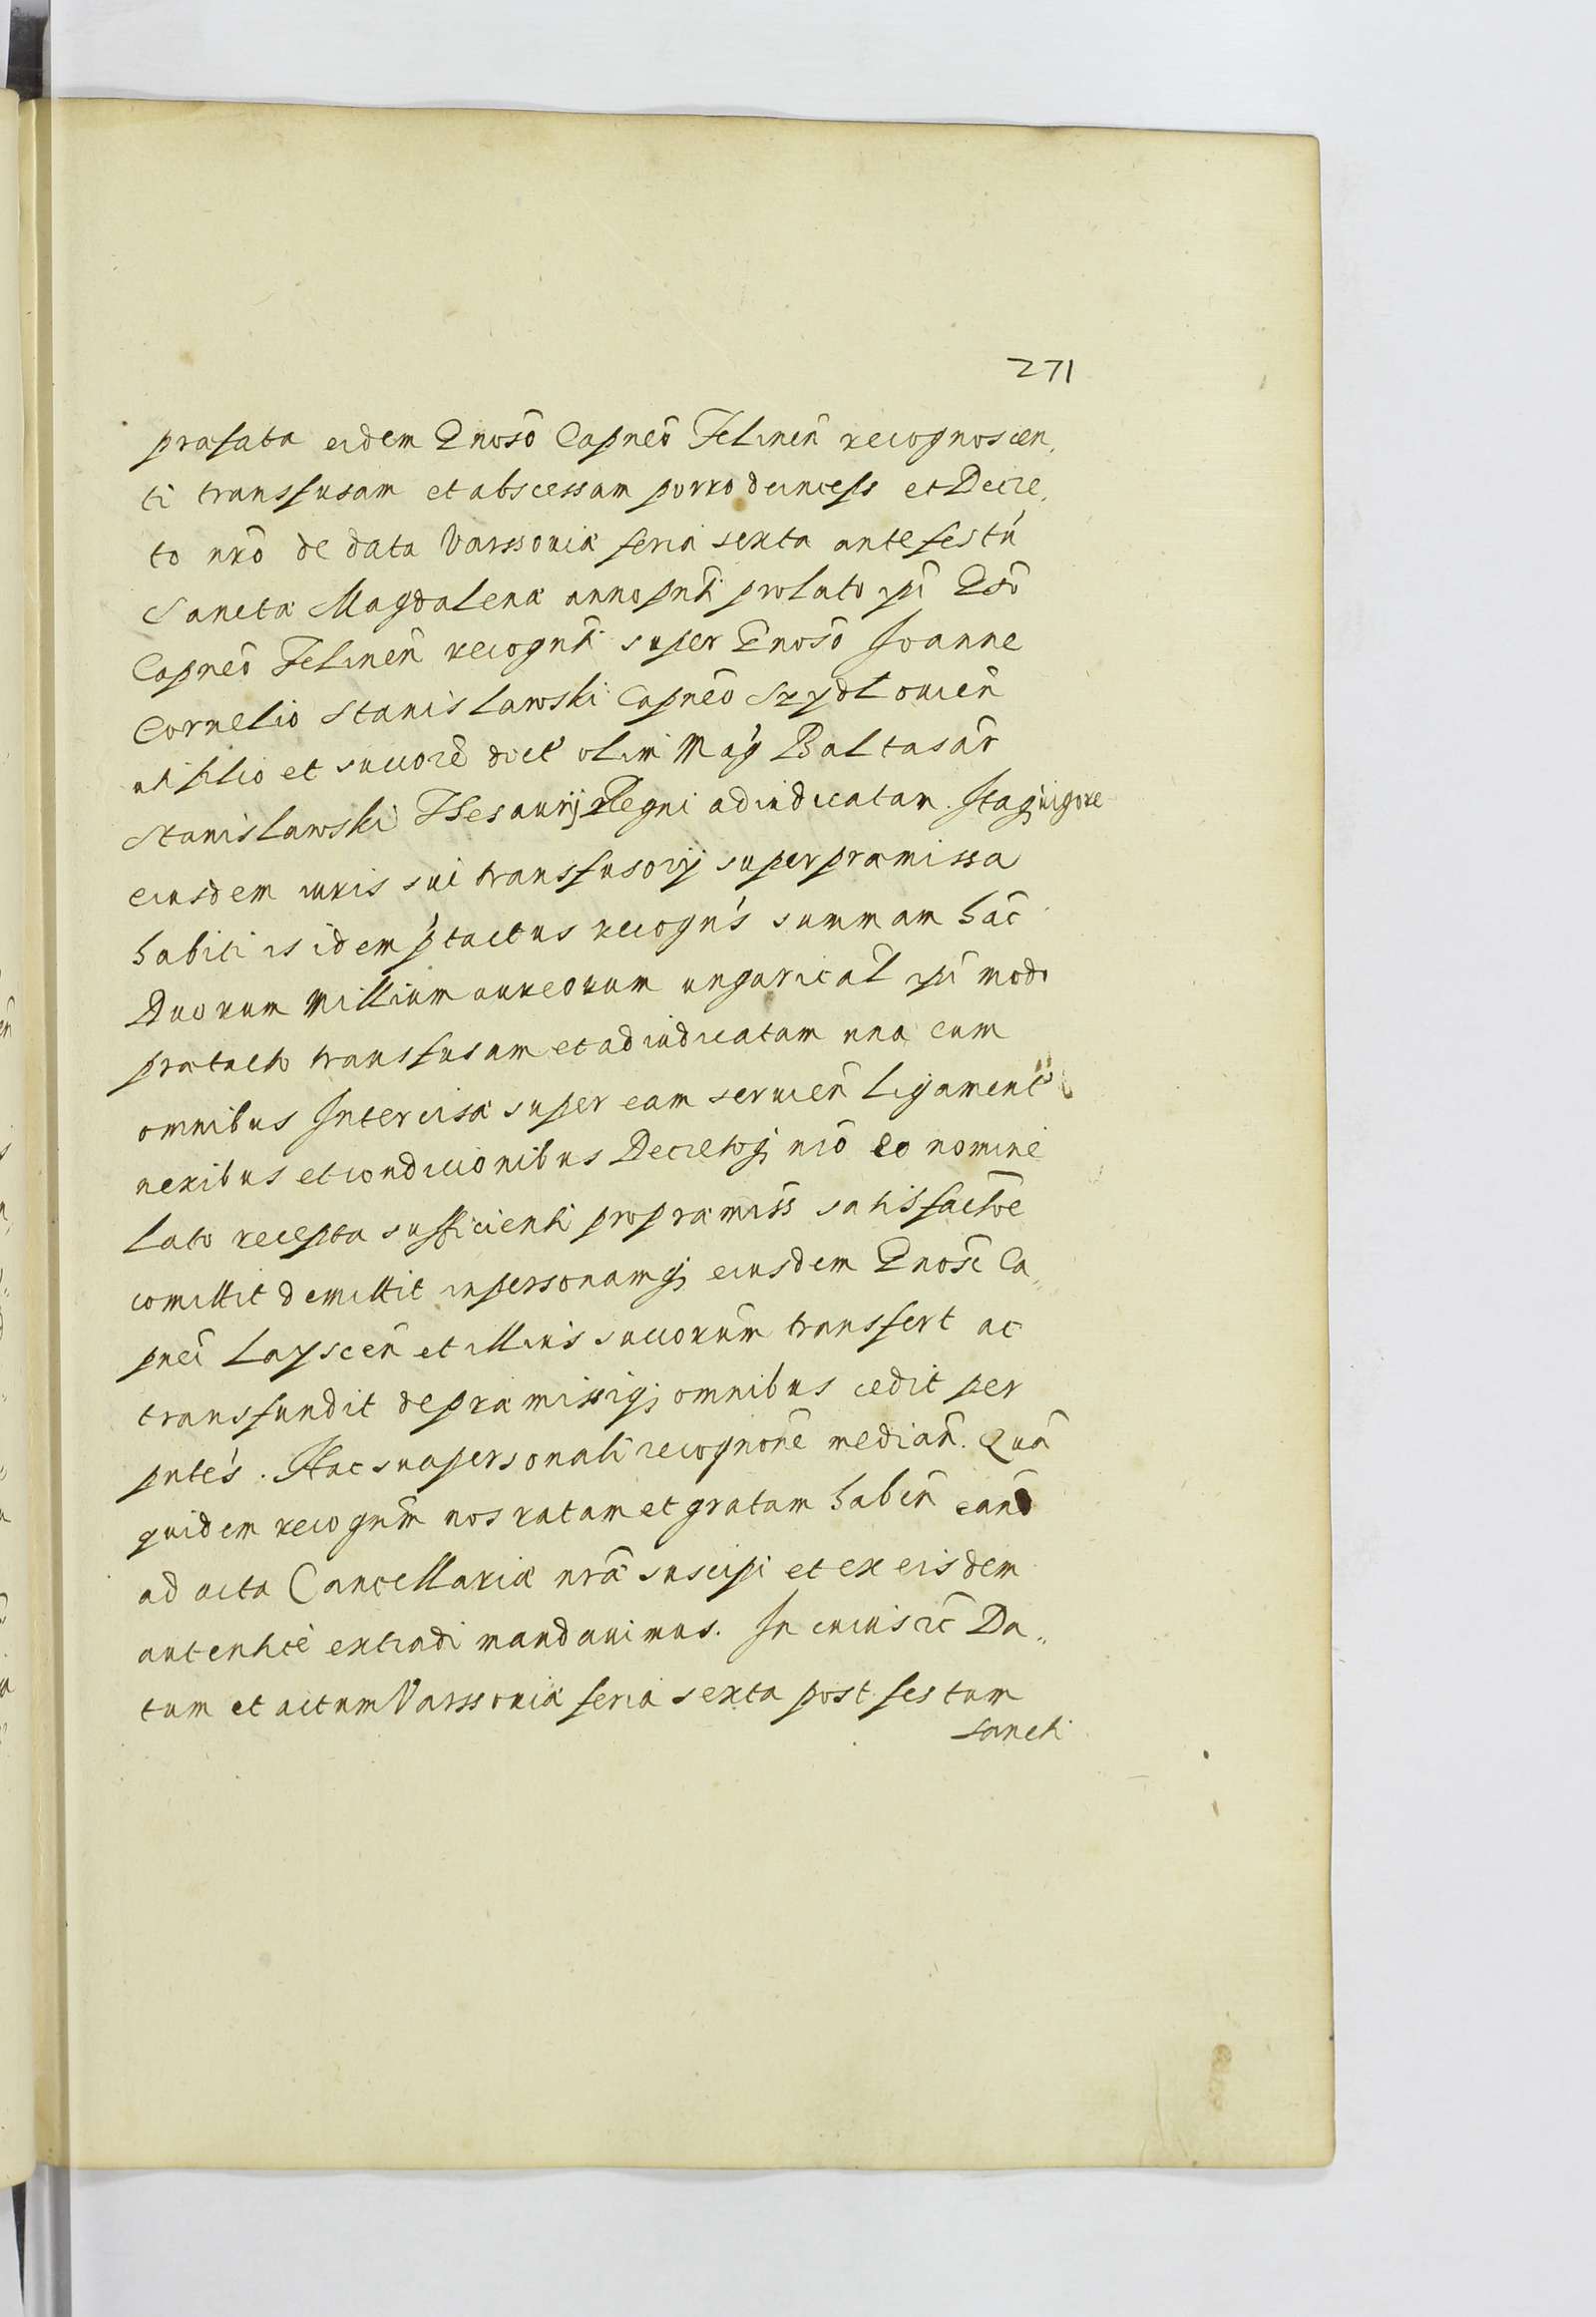 271
præfata eidem Gnoso Capneo Felinen recognoscen,
ti transfusam et abscessam porro deinceps et Decre,
to nro de data Varssouiæ feria sexta ante festu
Sanctæ Magdalenæ anno pnti prolato ipi Gso
Capneo Felinen recognti super Gnoso Joanne
Cornelio Stanislawski Capneo Szydlouien
uti filio et succore dict olim Mag Baltasar
Stanislawski Thesaurij Regni adiudicatam. Itaq; uigore
eiusdem iuris sui transfusorij super præmissa
habiti is idem ptactus recogns summam hac
Duorum Millium aureorum ungarical ipi modo
prætacto transfusam et adiudicatam una cum
omnibus Intercisæ super eam seruien ligament
nexibus et condicionibus Decretoq; nro eo nomine
lato recepta sufficienti pro præmiss satisfactoe
comittit demittit in personamq; eiusdem Gnosi Ca„
pnei Layscen et illius succorum transfert ac
transfundit de præmissisq; omnibus cedit per
pntes. Hac sua personali recognone median. Qua
quidem recognem nos ratam et gratam haben eand
ad acta Cancellariæ nræ suscipi et ex eisdem
autentice extradi mandauimus. In cuius rei Da„
tum et actum Varssouiæ feria sexta post festum
Sancti